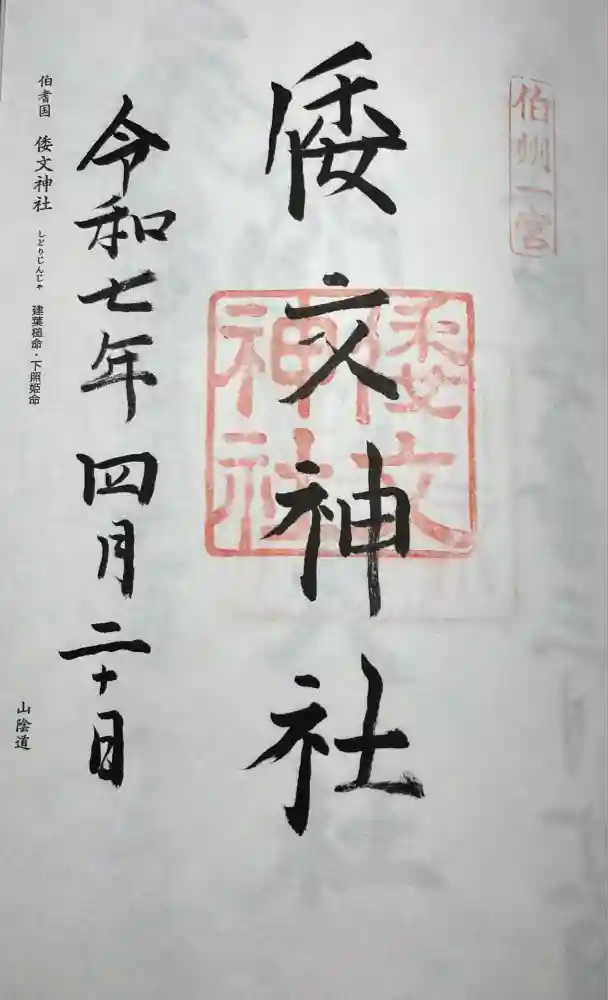 伯州一宮
倭文神社
倭文
神社
令和七年四月二十日
伯耆国 倭文神社 しどりじんじゃ 建葉槌命・下照姫命
山陰道